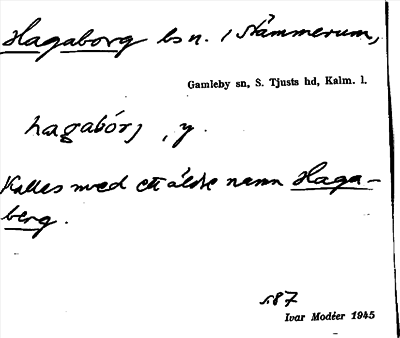 Hagaborg bs n. i Stämmerum,
Gamleby sn, S. Tjusts hd, Kalm. l.
hagabórj , y.
Kallas med ett äldre namn Haga-
berg.
s. 87
Ivar Modéer 1945